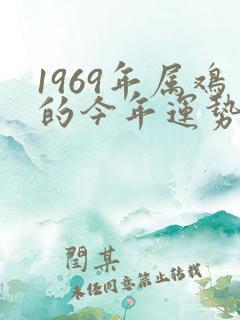 1969年属鸡
的今年運勢
閆某
未经同意禁止转载